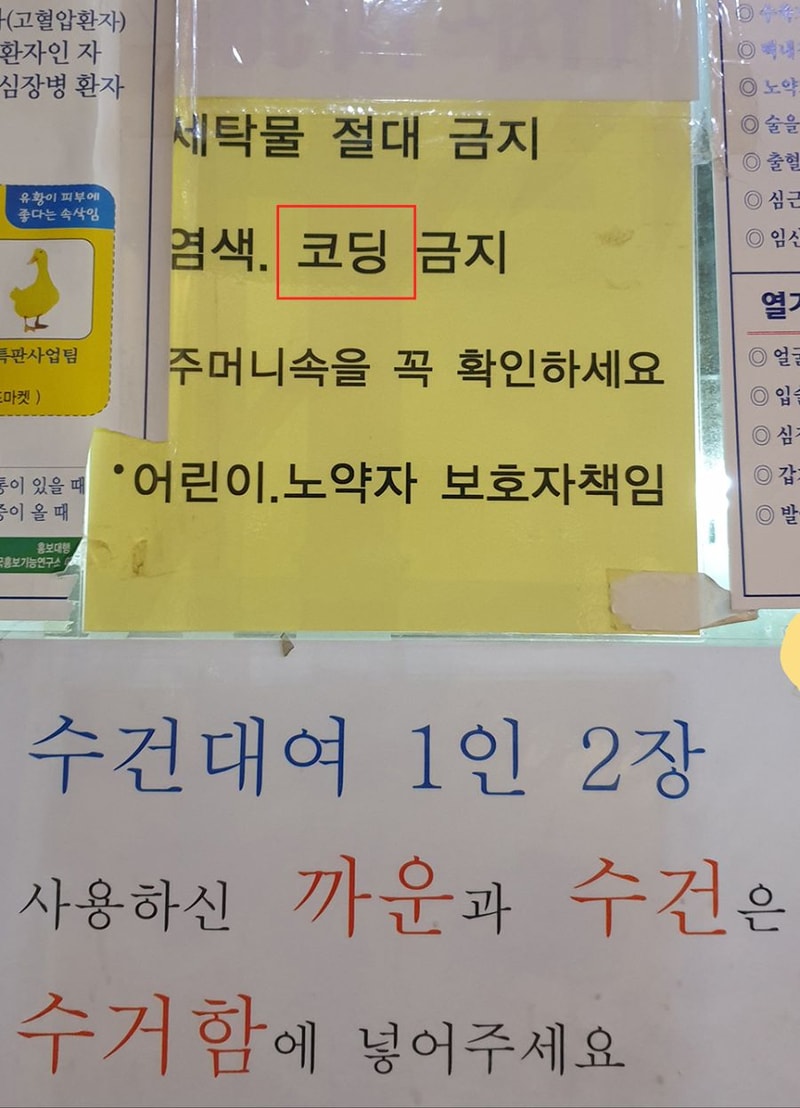 (고혈압환자)
환자인 자
심장병 환자
유황이 피부에
좋다는 속삭임
특판사업팀
통이 있을 때
증이 올 때
홍보대행
세탁물 절대 금지
염색. 코딩 금지
주머니속을 꼭 확인하세요
•어린이.노약자 보호자책임
◎ 노약
◎ 술을
◎ 출혈
◎ 심근
◎ 임신
◎ 얼굴
◎ 입술
◎ 심장
◎ 갑
◎ 발
수건대여 1인 2장
사용하신 까운과 수건은
수거함에 넣어주세요